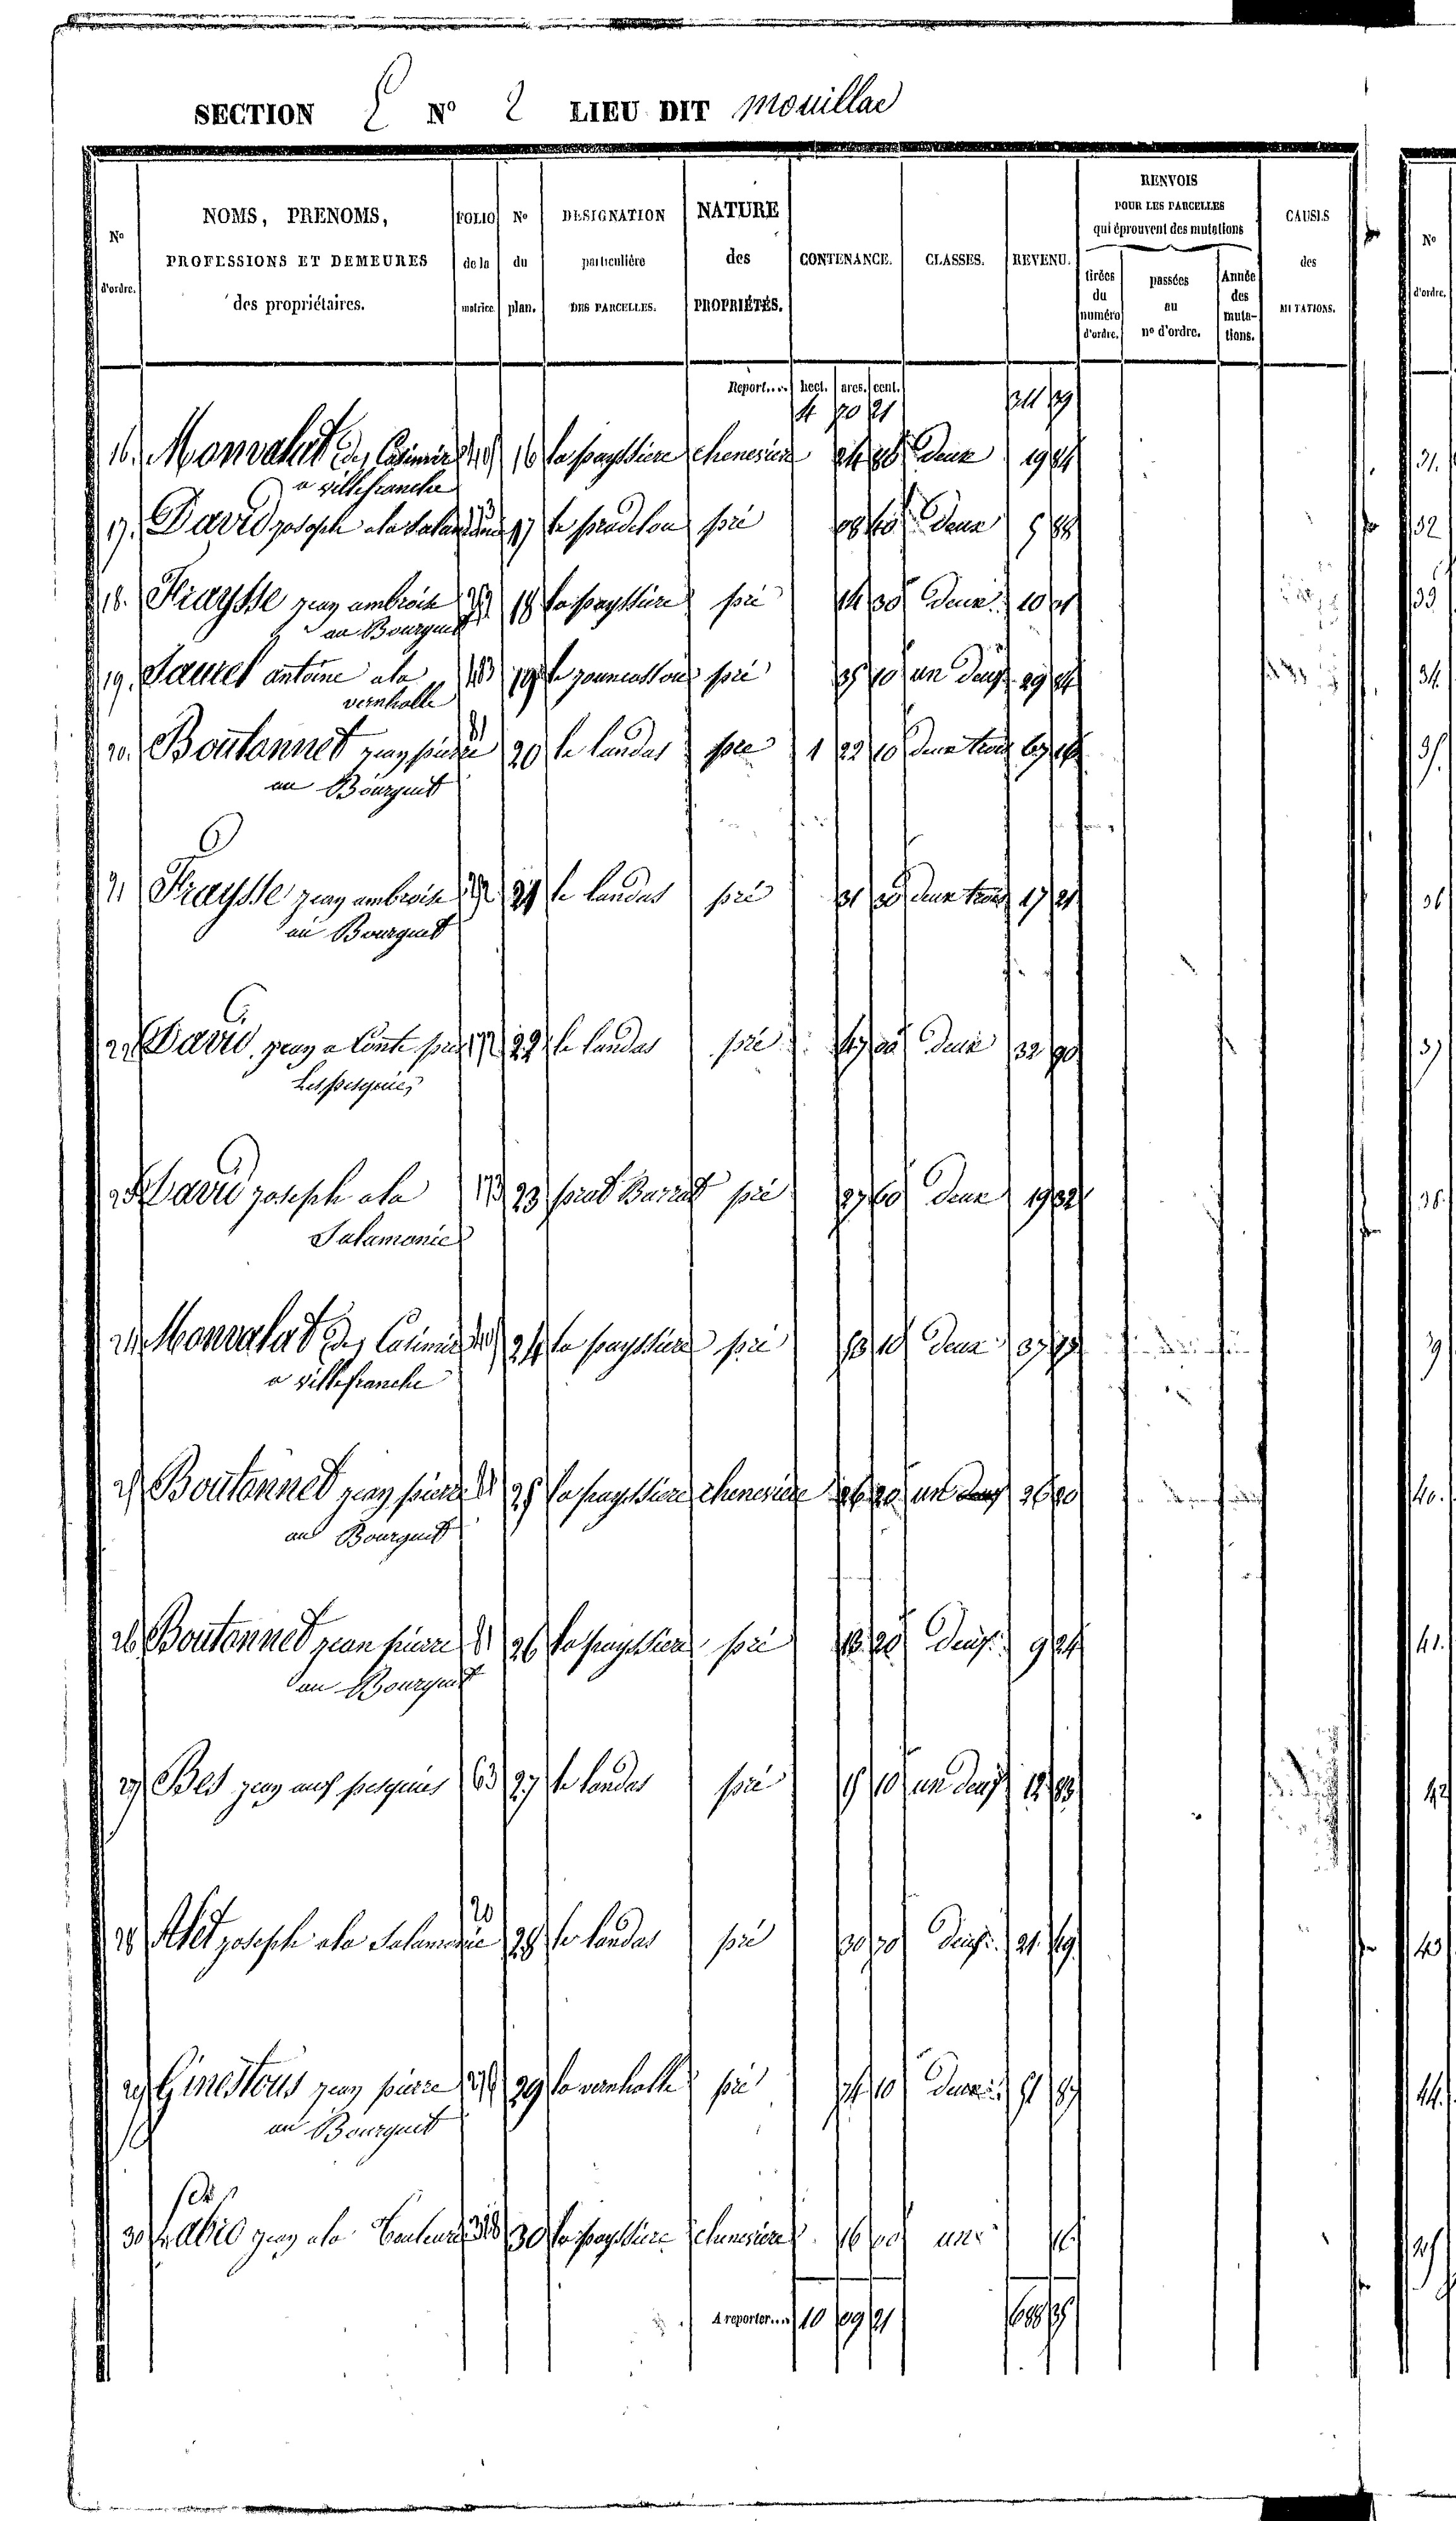 SECTION E N° 2 LIEU DIT mouillac
N° d'ordre. NOMS, PRENOMS, PROFESSIONS ET DEMEURES des propriétaires. FOLIO de la matrice N° du plan. DESIGNATION particulière DES PARCELLES. NATURE des PROPRIÉTÉS. CONTENANCE. CLASSES. REVENU. RENVOIS POUR LES PARCELLES qui éprouvent des mutations tirées du numéro d'ordre. passées au n° d'ordre. Année des muta-tions. CAUSES des MUTATIONS.
Report.... hect. ares. cent.
4 70 21 311 39
16. Monvalat Casimir 16 la payssiere cheneviere 24 80 deux 19 84
a villefranche
17. David joseph a la 173 17 le pradelou pré 08 40 deux 5 88
18. Fraysse jean ambroise 18 la payssiere pré 14 30 deux 10 01
au Bourguet
19. Lauret antoine a la 483 19 pré 35 10 un deux 29 84
vernholle
20. Boutonnet jean pierre 81 20 le landas pre 1 22 10 deux trois
au Bourguet
21 Fraysse jean ambroise 21 le landas pré 31 30 deux trois 17 21
au Bourguet
22 David jean 172 22 le landas pré 47 00 deux 32 90
23 David joseph a la 173 23 prat Barrat pré 27 60 deux 19 32
Salamonie
24 Monvalat Casimir 24 la payssiere pré 53 10 deux 37 17
a villefranche
25 Boutonnet jean pierre 81 25 la payssiere cheneviere 26 20 un 26 20
au Bourguet
26 Boutonnet jean pierre 81 26 la payssiere pré 13 20 deux 9 24
au Bourguet
27 Bes jean aux pesquies 63 27 le landas pré 15 10 un deux 12 83
28 Alet joseph a la Salamonie 20 28 le landas pré 30 70 deux 21 49
29 Ginestous jean pierre 276 29 la vernholle pré 74 10 deux 51 87
au Bourguet
30 jean a la 318 30 la payssiere cheneviere 16 00 un 16
A reporter.... 10 09 21 688 35
N° d'ordre.
31.
32
33
34
35.
36
37
38.
39
40.
41.
42
43
44.
45